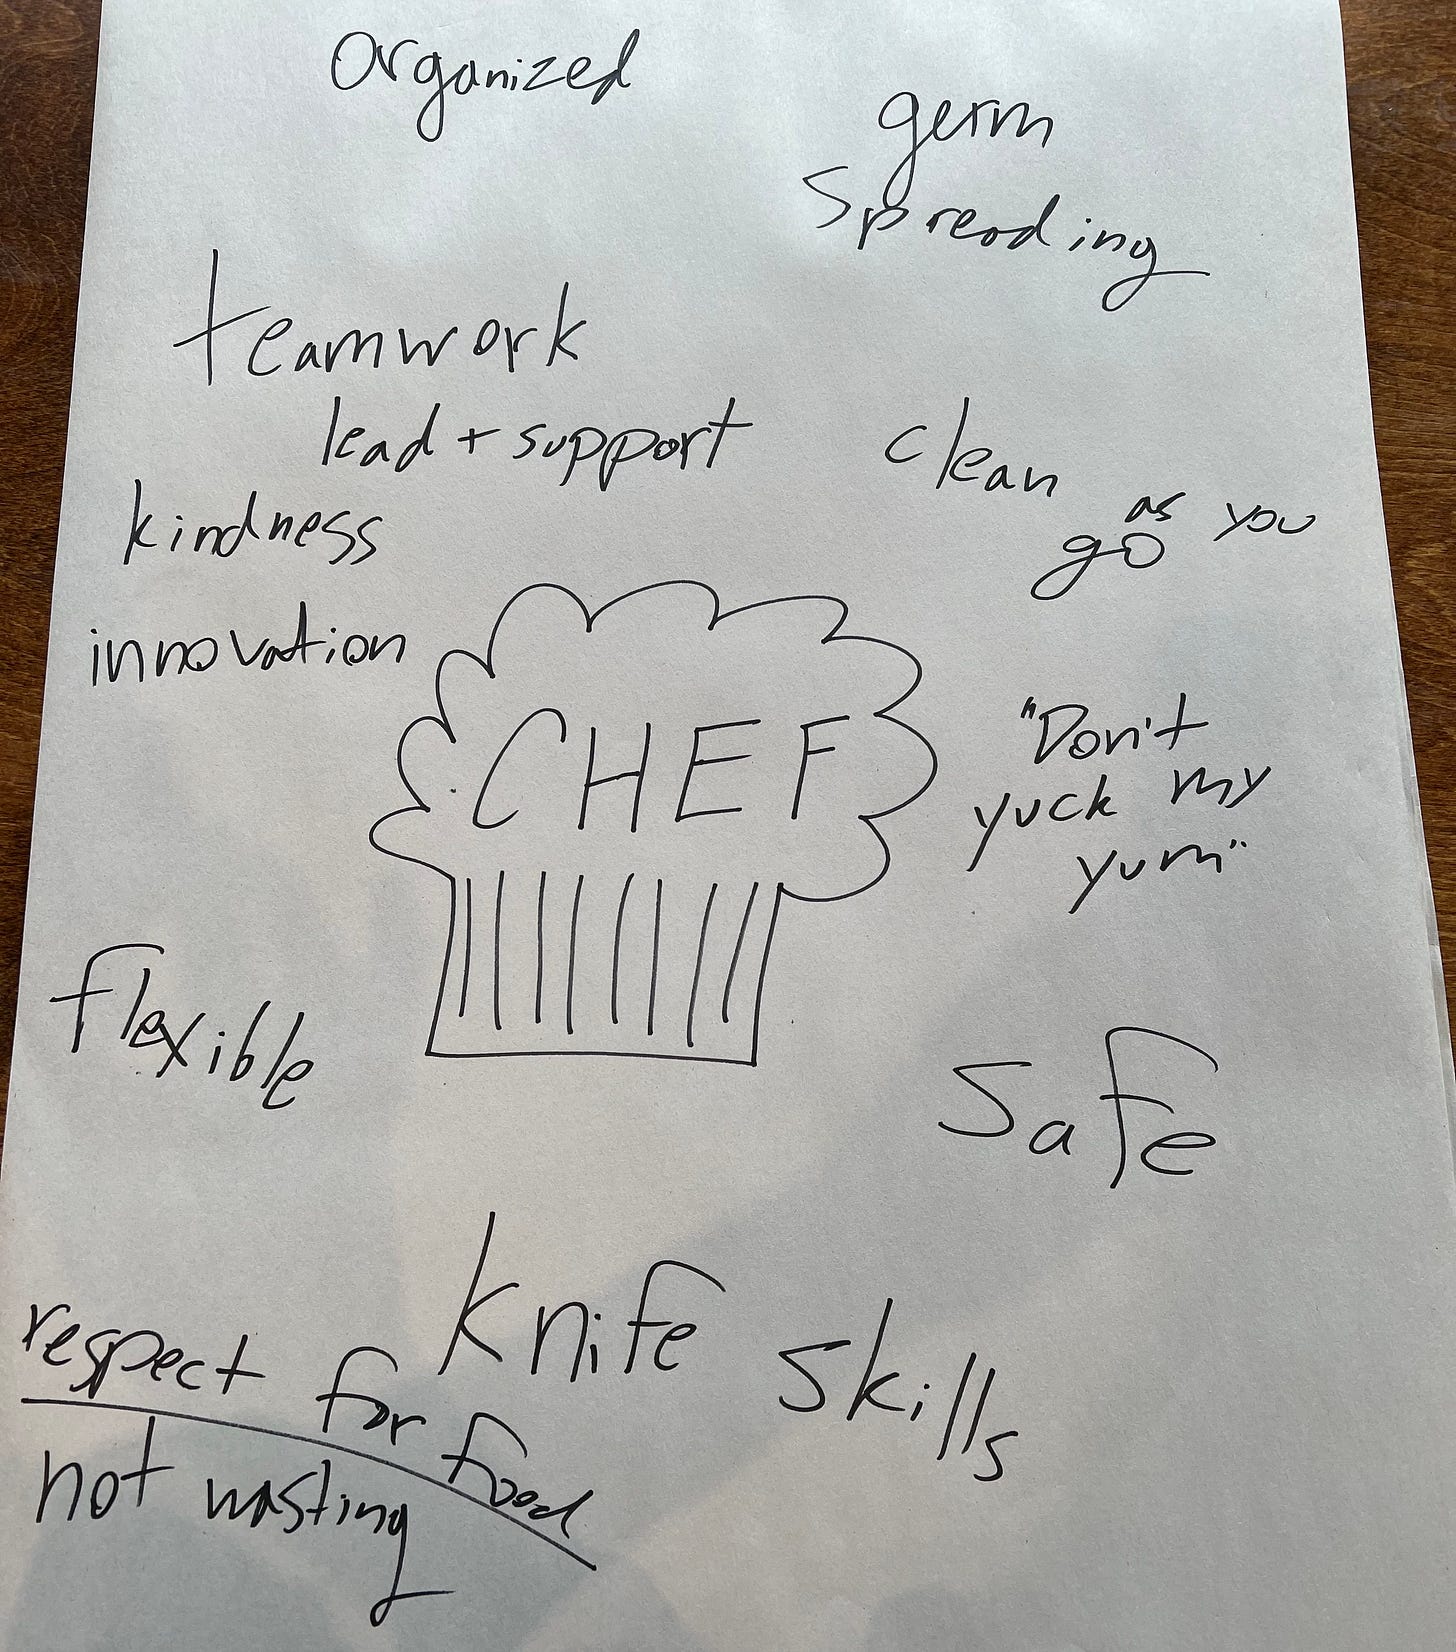 organized
germ
spreading
teamwork
lead + support
clean
as you
go
kindness
innovation
CHEF
"Don't
yuck my
yum"
flexible
safe
knife skills
respect for food
not wasting